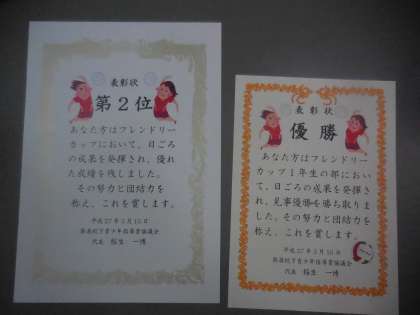 表彰状
第2位
あなた方はフレンドリー
カップにおいて、日ごろ
の成果を発揮され、優れ
た成績を残しました。
その努力と団結力を
称え、これを賞します。
平成27年3月15日
青少年指導者協議会
代表 稲生 一博
表彰状
優勝
あなた方はフレンドリー
カップ1年生の部におい
て、日ごろの成果を発揮さ
れ、見事優勝を勝ち取りま
した。その努力と団結力を
称え、これを賞します。
平成27年3月15日
青少年指導者協議会
代表 稲生 一博